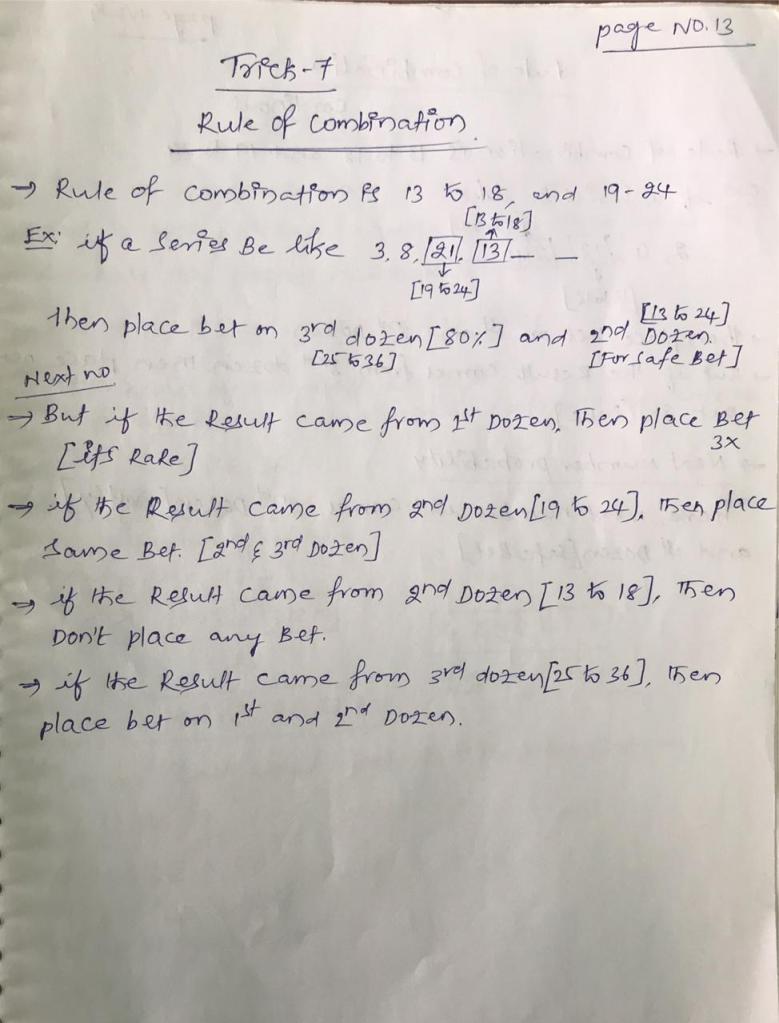 page NO.13
Trick-7
Rule of Combination.
→ Rule of combination is 13 to 18, and 19-24
[13 to 18]
Ex: if a Series Be like 3, 8, 21, 13 — —
[19 to 24]
Then place bet on 3rd dozen [80%] and 2nd Dozen.
[13 to 24]
[25 to 36]
[For safe Bet]
Next no
→ But if the Result came from 1st Dozen, Then place Bet
3x
[its Rare]
→ if the Result came from 2nd Dozen [19 to 24], Then place
Same Bet. [2nd & 3rd Dozen]
→ if the Result came from 2nd Dozen [13 to 18], Then
Don't place any Bet.
→ if the Result came from 3rd dozen [25 to 36], Then
place bet on 1st and 2nd Dozen.